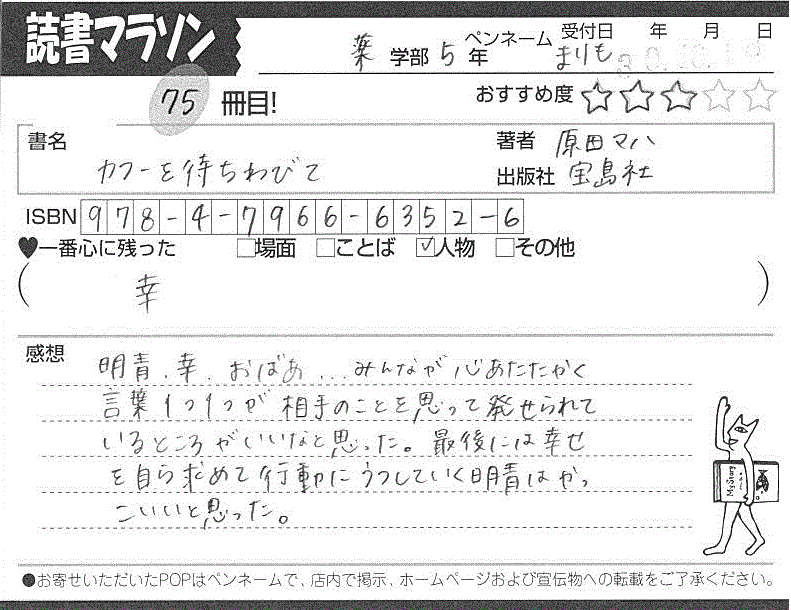 読書マラソン
薬 学部 5 年 ペンネーム まりも 受付日 年 月 日
75 冊目! おすすめ度 ☆☆☆☆☆
書名 カフーを待ちわびて
著者 原田マハ
出版社 宝島社
ISBN 978-4-7966-6352-6
♥一番心に残った □場面 □ことば ☑人物 □その他
( 幸 )
感想 明青、幸、おばあ…みんなが心あたたかく
言葉1つ1つが相手のことを思って発せられて
いるところがいいなと思った。最後には幸せ
を自ら求めて行動にうつしていく明青はかっ
こいいと思った。
●お寄せいただいたPOPはペンネームで、店内で掲示、ホームページおよび宣伝物への転載をご了承ください。